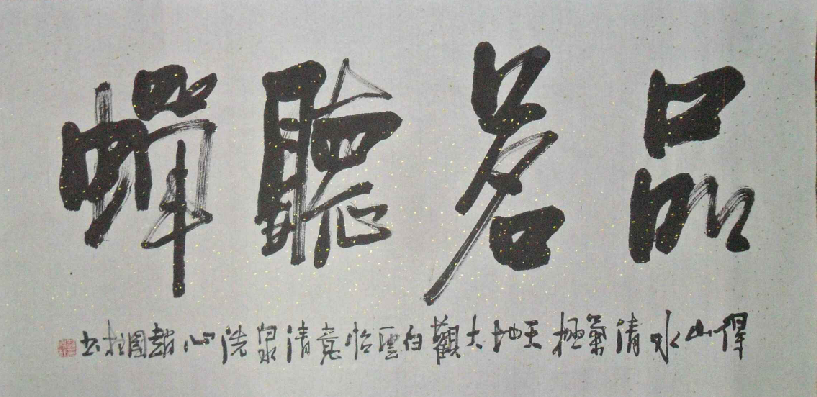 品茗聽蟬
得山水清氣極天地大觀白雲怡意清泉洗心趙國柱書